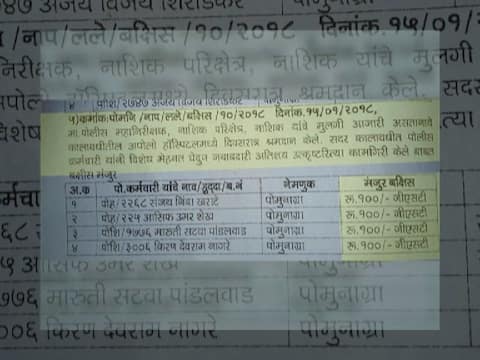 ४७ अजय विजय शिरोडकर
/नाप/लले/बक्षिस /१०/२०१८ दिनांक.१५/०१/२
निरीक्षक, नाशिक परिक्षेत्र, नाशिक यांचे मुलगी
४ पोशि/२७४७ अजय विजय शिरोडकर
५)क्रमांकःपोमनि /नाप/लले/बक्षिस /१०/२०१८ दिनांक.१५/०१/२०१८,
मा.पोलीस महानिरीक्षक, नाशिक परिक्षेत्र, नाशिक यांचे मुलगी आजारी असतानाचे
कालावधीतील अपोलो हॉस्पिटलमध्ये दिवसरात्र श्रमदान केले. सदर कालावधीत पोलीस
कर्मचारी यांनी विशेष मेहनत घेवुन जबाबदारी अतिशय उत्कृष्टरित्या कामगिरी केले बाबत
बक्षीस मंजुर
अ.क्र पो.कर्मचारी यांचे नाव/हुद्दा/ब.नं नेमणुक मंजुर बक्षिस
१ पोहु/२२६८ संजय बिंदा खराटे पोमुनाग्रा रू.१००/- जीएसटी
२ पोह/२२५ आसिफ उमर शेख पोमुनाग्रा रू.१००/- जीएसटी
३ पोशि/१७७६ मारूती सटवा पांडलवाड पोमुनाग्रा रू.१००/- जीएसटी
४ पोशि/३००६ किरण देवराम नागरे पोमुनाग्रा रू.१००/- जीएसटी
७७६ मारूती सटवा पांडलवाड पोमुनाग्रा
००६ किरण देवराम नागरे पोमुनाग्रा